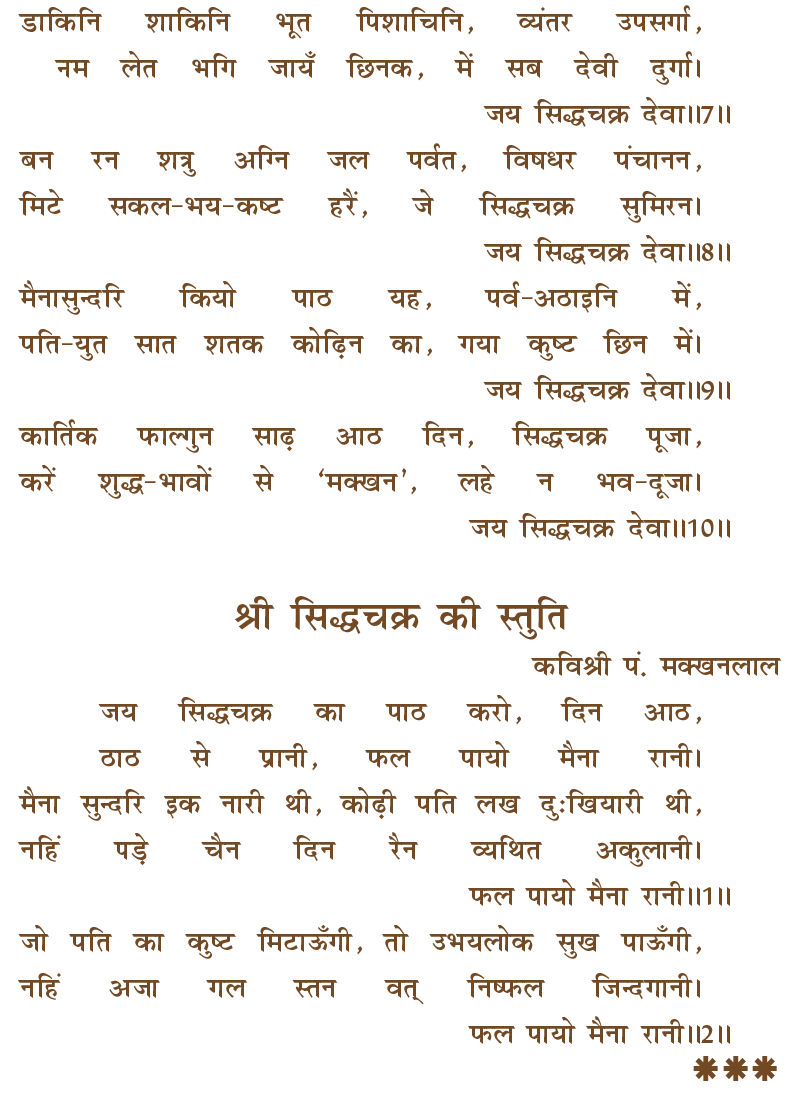 डाकिनि शाकिनि भूत पिशाचिनि, व्यंतर उपसर्गा,
नम लेत भगि जायँ छिनक, में सब देवी दुर्गा।
जय सिद्धचक्र देवा॥7॥
बन रन शत्रु अग्नि जल पर्वत, विषधर पंचानन,
मिटे सकल-भय-कष्ट हरैं, जे सिद्धचक्र सुमिरन।
जय सिद्धचक्र देवा॥8॥
मैनासुन्दरि कियो पाठ यह, पर्व-अठाइनि में,
पति-युत सात शतक कोढ़िन का, गया कुष्ट छिन में।
जय सिद्धचक्र देवा॥9॥
कार्तिक फाल्गुन साढ़ आठ दिन, सिद्धचक्र पूजा,
करें शुद्ध-भावों से ‘मक्खन’, लहे न भव-दूजा।
जय सिद्धचक्र देवा॥10॥
श्री सिद्धचक्र की स्तुति
कविश्री पं. मक्खनलाल
जय सिद्धचक्र का पाठ करो, दिन आठ,
ठाठ से प्रानी, फल पायो मैना रानी।
मैना सुन्दरि इक नारी थी, कोढ़ी पति लख दुःखियारी थी,
नहिं पड़े चैन दिन रैन व्यथित अकुलानी।
फल पायो मैना रानी॥1॥
जो पति का कुष्ट मिटाऊँगी, तो उभयलोक सुख पाऊँगी,
नहिं अजा गल स्तन वत् निष्फल जिन्दगानी।
फल पायो मैना रानी॥2॥
✱✱✱